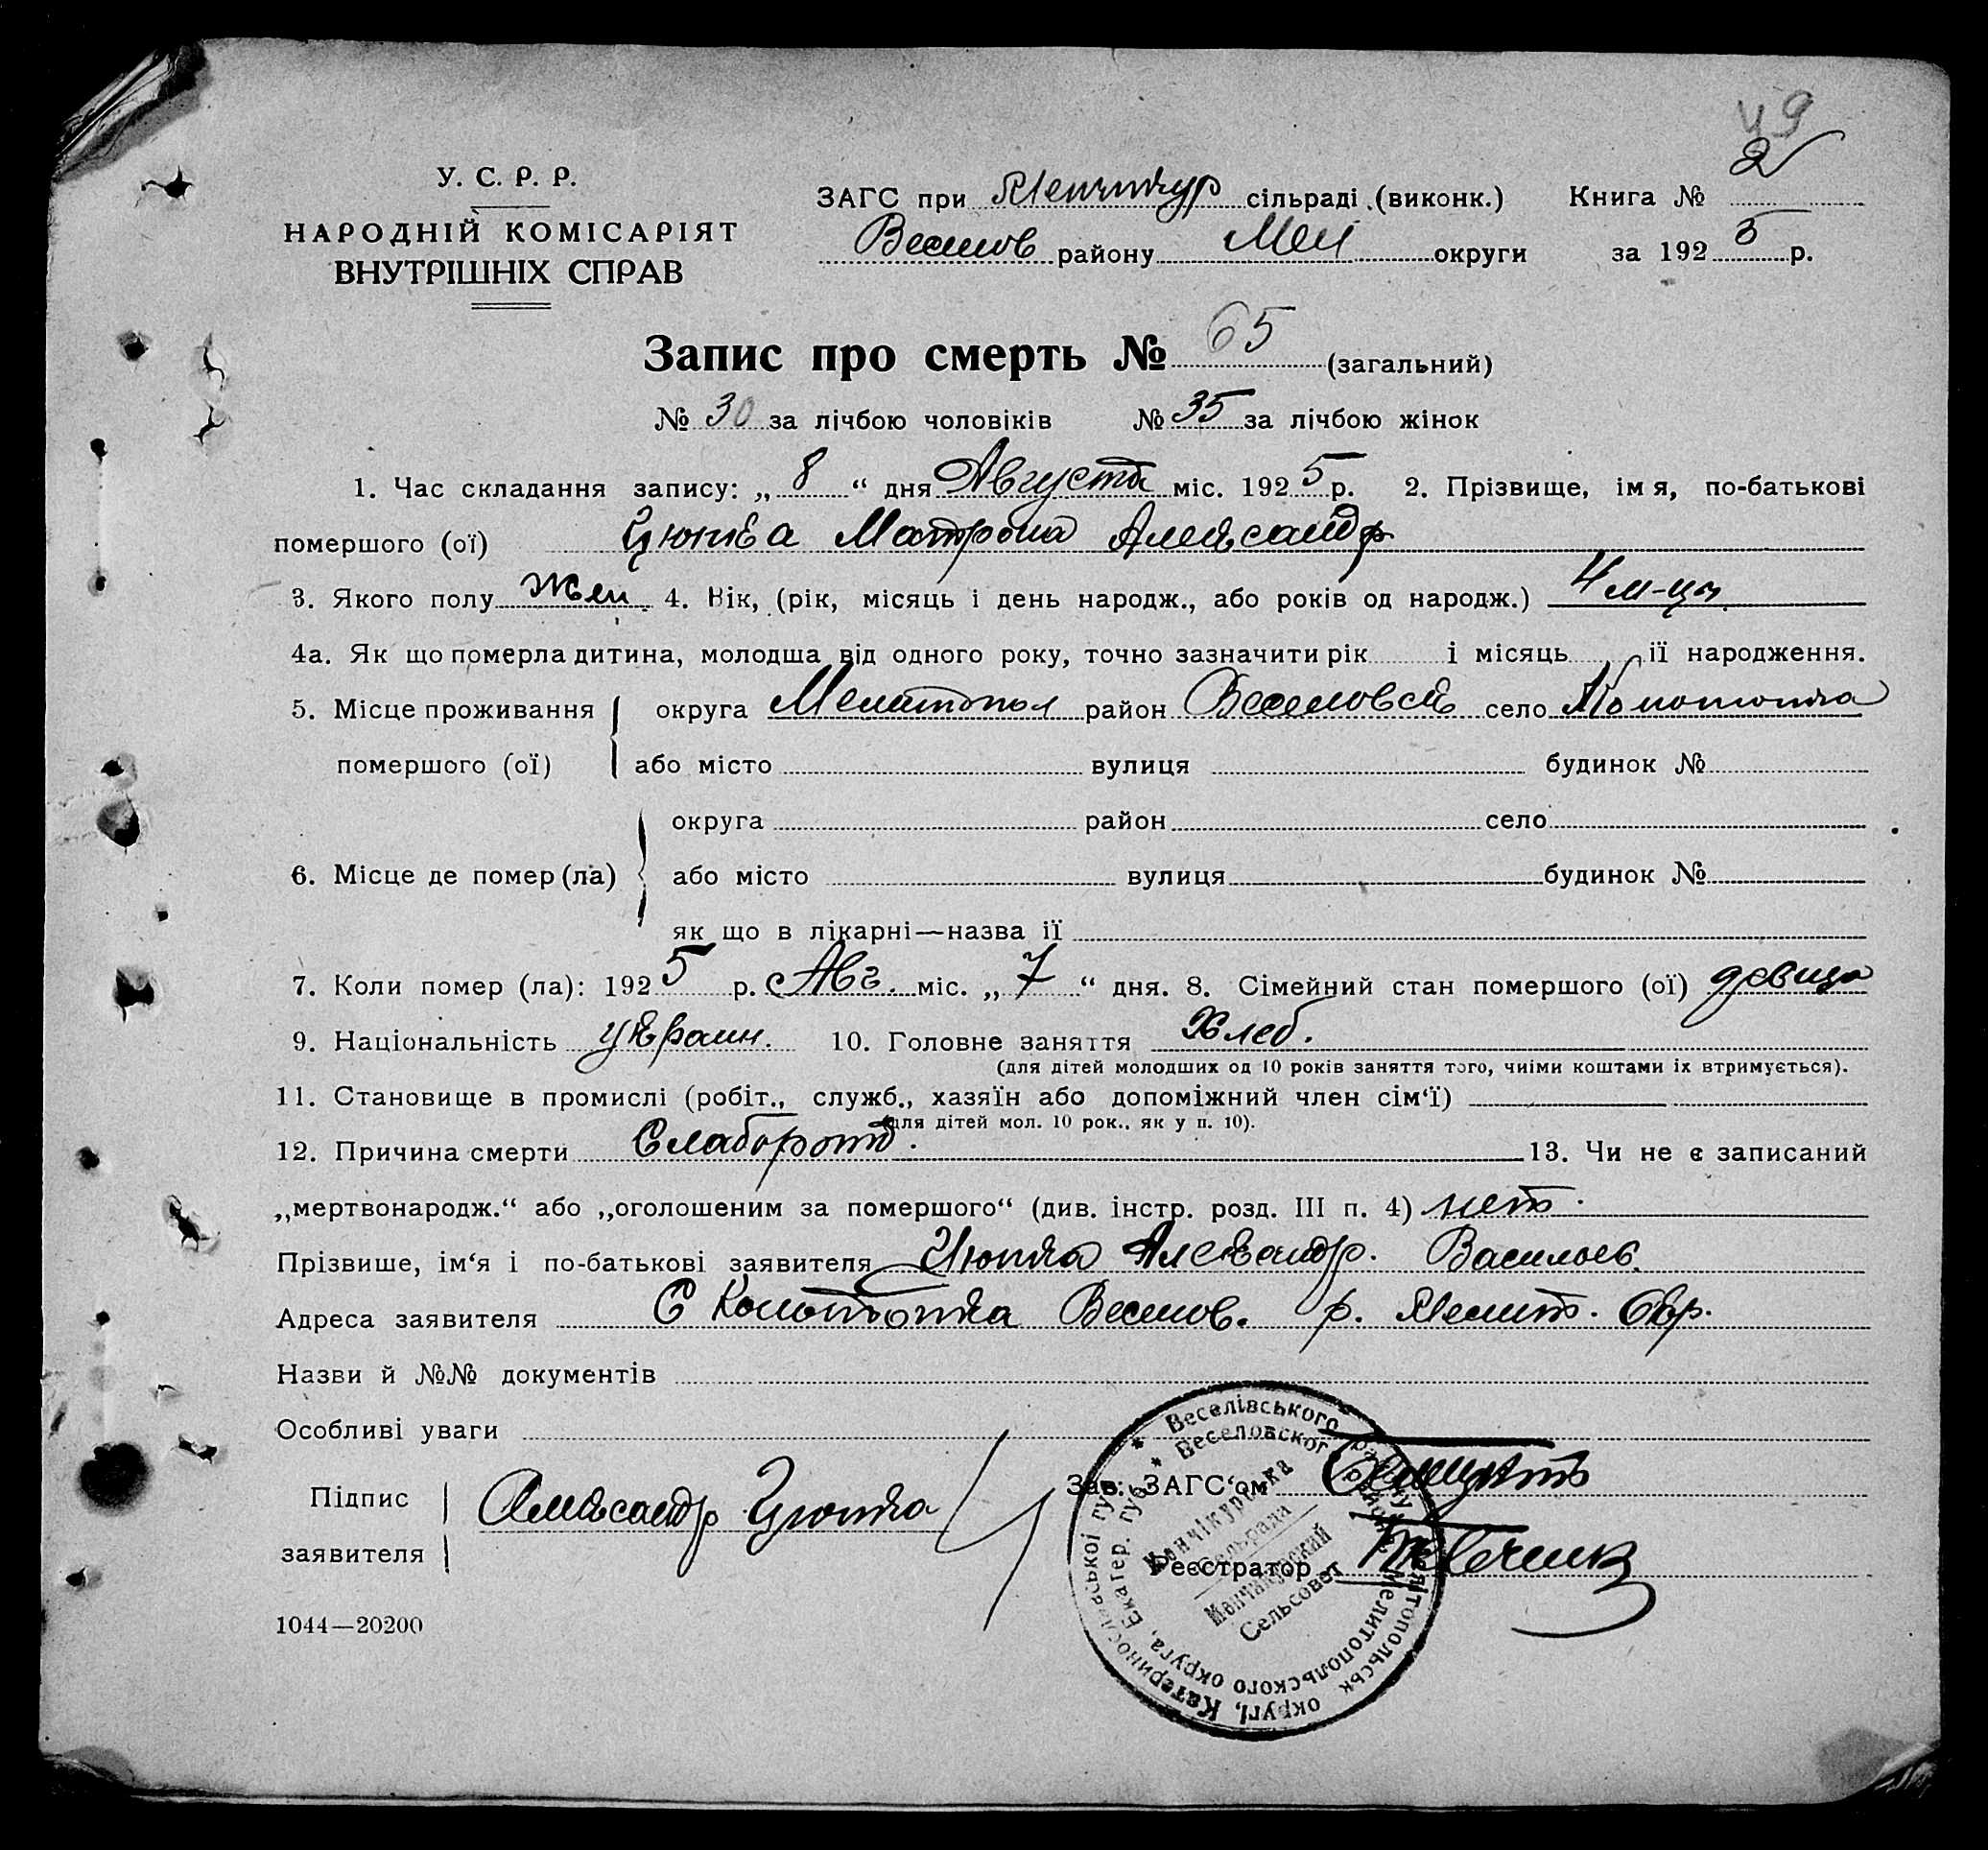 49
2
У. С. Р. Р.
НАРОДНІЙ КОМІСАРІЯТ
ВНУТРІШНІХ СПРАВ
ЗАГС при Менчикур сільраді (виконк.) Книга №
Веселов району Мел округи за 1925 р.
Запис про смерть № 65 (загальний)
№ 30 за лічбою чоловіків № 35 за лічбою жінок
1. Час складання запису: „8“ дня Августа міс. 1925 р. 2. Прізвище, імя, по-батькові
помершого (ої) Цюпка Матрона Александр
3. Якого полу Жен 4. Вік, (рік, місяць і день народж., або років од народж.) 4 м-цы
4а. Як що померла дитина, молодша від одного року, точно зазначити рік і місяць ії народження.
5. Місце проживання округа Мелитопол район Веселовск село
помершого (ої) або місто вулиця будинок №
округа район село
6. Місце де помер (ла) або місто вулиця будинок №
як що в лікарні—назва ії
7. Коли помер (ла): 1925 р. Авг. міс. „7“ дня. 8. Сімейний стан помершого (ої) девица
9. Національність украин. 10. Головне заняття Хлеб.
(для дітей молодших од 10 років заняття того, чиїми коштами їх втримується).
11. Становище в промислі (робіт., служб., хазяїн або допоміжний член сім‘ї)
(для дітей мол. 10 рок., як у п. 10).
12. Причина смерти Слаборотд. 13. Чи не є записаний
„мертвонародж.“ або „оголошеним за помершого“ (див. інстр. розд. III п. 4) нет.
Прізвише, ім‘я і по-батькові заявителя Цюпка Александр. Васильев.
Адреса заявителя С Веселов. р. Мелит. Окр.
Назви й №№ документів
Особливі уваги
Підпис
заявителя
Александр Цюпка
Зав. ЗАГС‘ом
Реєстратор
* Веселівського району Мелітопольськ округі, Катеринославської губ.
* Веселовског району Мелитопольского округа, Екатер. губ.
Менчікурська
Сельрада
Менчикурский
Сельсовет
1044—20200